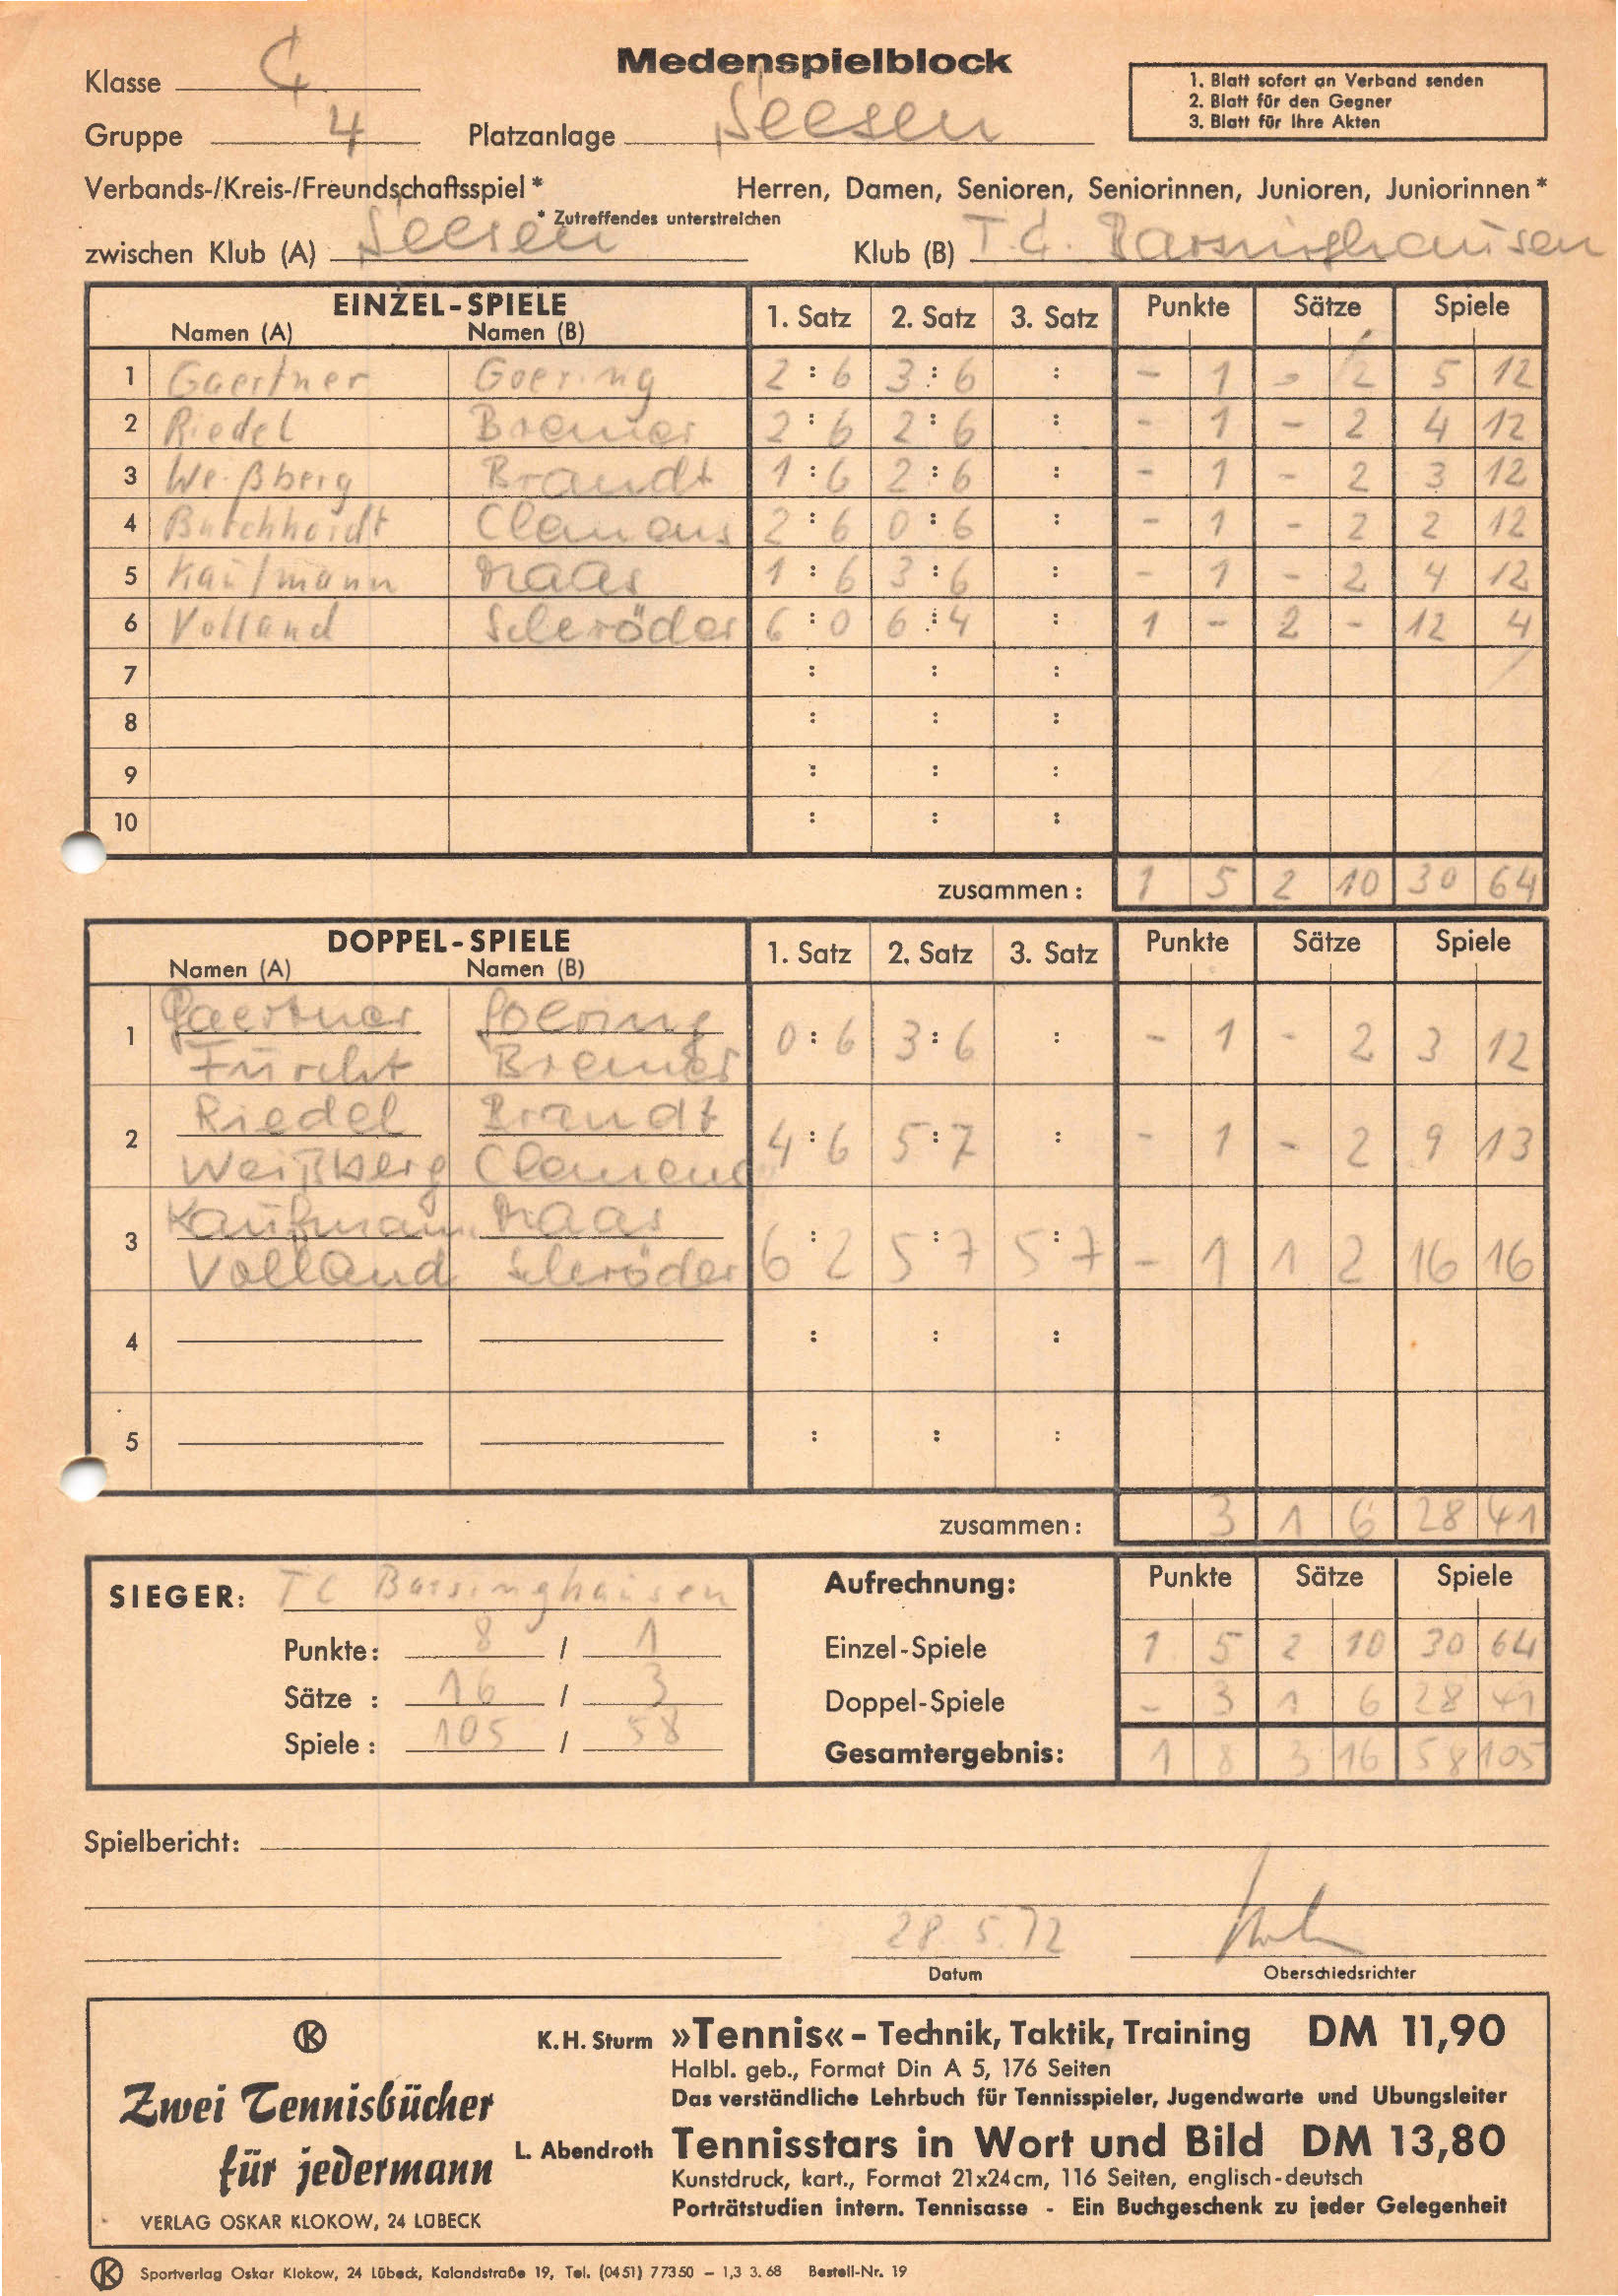 Medenspielblock
Klasse C
Gruppe 4 Platzanlage Seesen
1. Blatt sofort an Verband senden
2. Blatt für den Gegner
3. Blatt für Ihre Akten
Verbands-/Kreis-/Freundschaftsspiel * Herren, Damen, Senioren, Seniorinnen, Junioren, Juniorinnen *
* Zutreffendes unterstreichen
zwischen Klub (A) Seesen Klub (B) T.C. Barsinghausen
EINZEL-SPIELE 1. Satz 2. Satz 3. Satz Punkte Sätze Spiele
Namen (A) Namen (B)
1 Gaertner Goering 2 : 6 3 : 6 : - 1 - 2 5 12
2 Riedel Bremer 2 : 6 2 : 6 : - 1 - 2 4 12
3 Weißberg Brandt 1 : 6 2 : 6 : - 1 - 2 3 12
4 Burchhardt Clemens 2 : 6 0 : 6 : - 1 - 2 2 12
5 Kaufmann Maas 1 : 6 3 : 6 : - 1 - 2 4 12
6 Volland Schröder 6 : 0 6 : 4 : 1 - 2 - 12 4
7 : : :
8 : : :
9 : : :
10 : : :
zusammen: 1 5 2 10 30 64
DOPPEL-SPIELE 1. Satz 2. Satz 3. Satz Punkte Sätze Spiele
Namen (A) Namen (B)
Gaertner Goering
1 0 : 6 3 : 6 : - 1 - 2 3 12
Furcht Bremer
Riedel Brandt
2 4 : 6 5 : 7 : - 1 - 2 9 13
Weißberg Clemens
Kaufmann Maas
3 6 : 2 5 : 7 5 : 7 - 1 1 2 16 16
Volland Schröder
4 : : :
5 : : :
zusammen: 3 1 6 28 41
SIEGER: TC Barsinghausen Aufrechnung: Punkte Sätze Spiele
Punkte: 8 / 1 Einzel-Spiele 1 5 2 10 30 64
Sätze : 16 / 3 Doppel-Spiele - 3 1 6 28 41
Spiele : 105 / 58 Gesamtergebnis: 1 8 3 16 58 105
Spielbericht:
28.5.72
Datum Oberschiedsrichter
K
Zwei Tennisbücher
für jedermann
VERLAG OSKAR KLOKOW, 24 LÜBECK
K.H. Sturm »Tennis« - Technik, Taktik, Training DM 11,90
Halbl. geb., Format Din A 5, 176 Seiten
Das verständliche Lehrbuch für Tennisspieler, Jugendwarte und Übungsleiter
L. Abendroth Tennisstars in Wort und Bild DM 13,80
Kunstdruck, kart., Format 21x24cm, 116 Seiten, englisch-deutsch
Porträtstudien intern. Tennisasse - Ein Buchgeschenk zu jeder Gelegenheit
K Sportverlag Oskar Klokow, 24 Lübeck, Kalandstraße 19, Tel. (0451) 77350 – 1,3 3.68 Bestell-Nr. 19